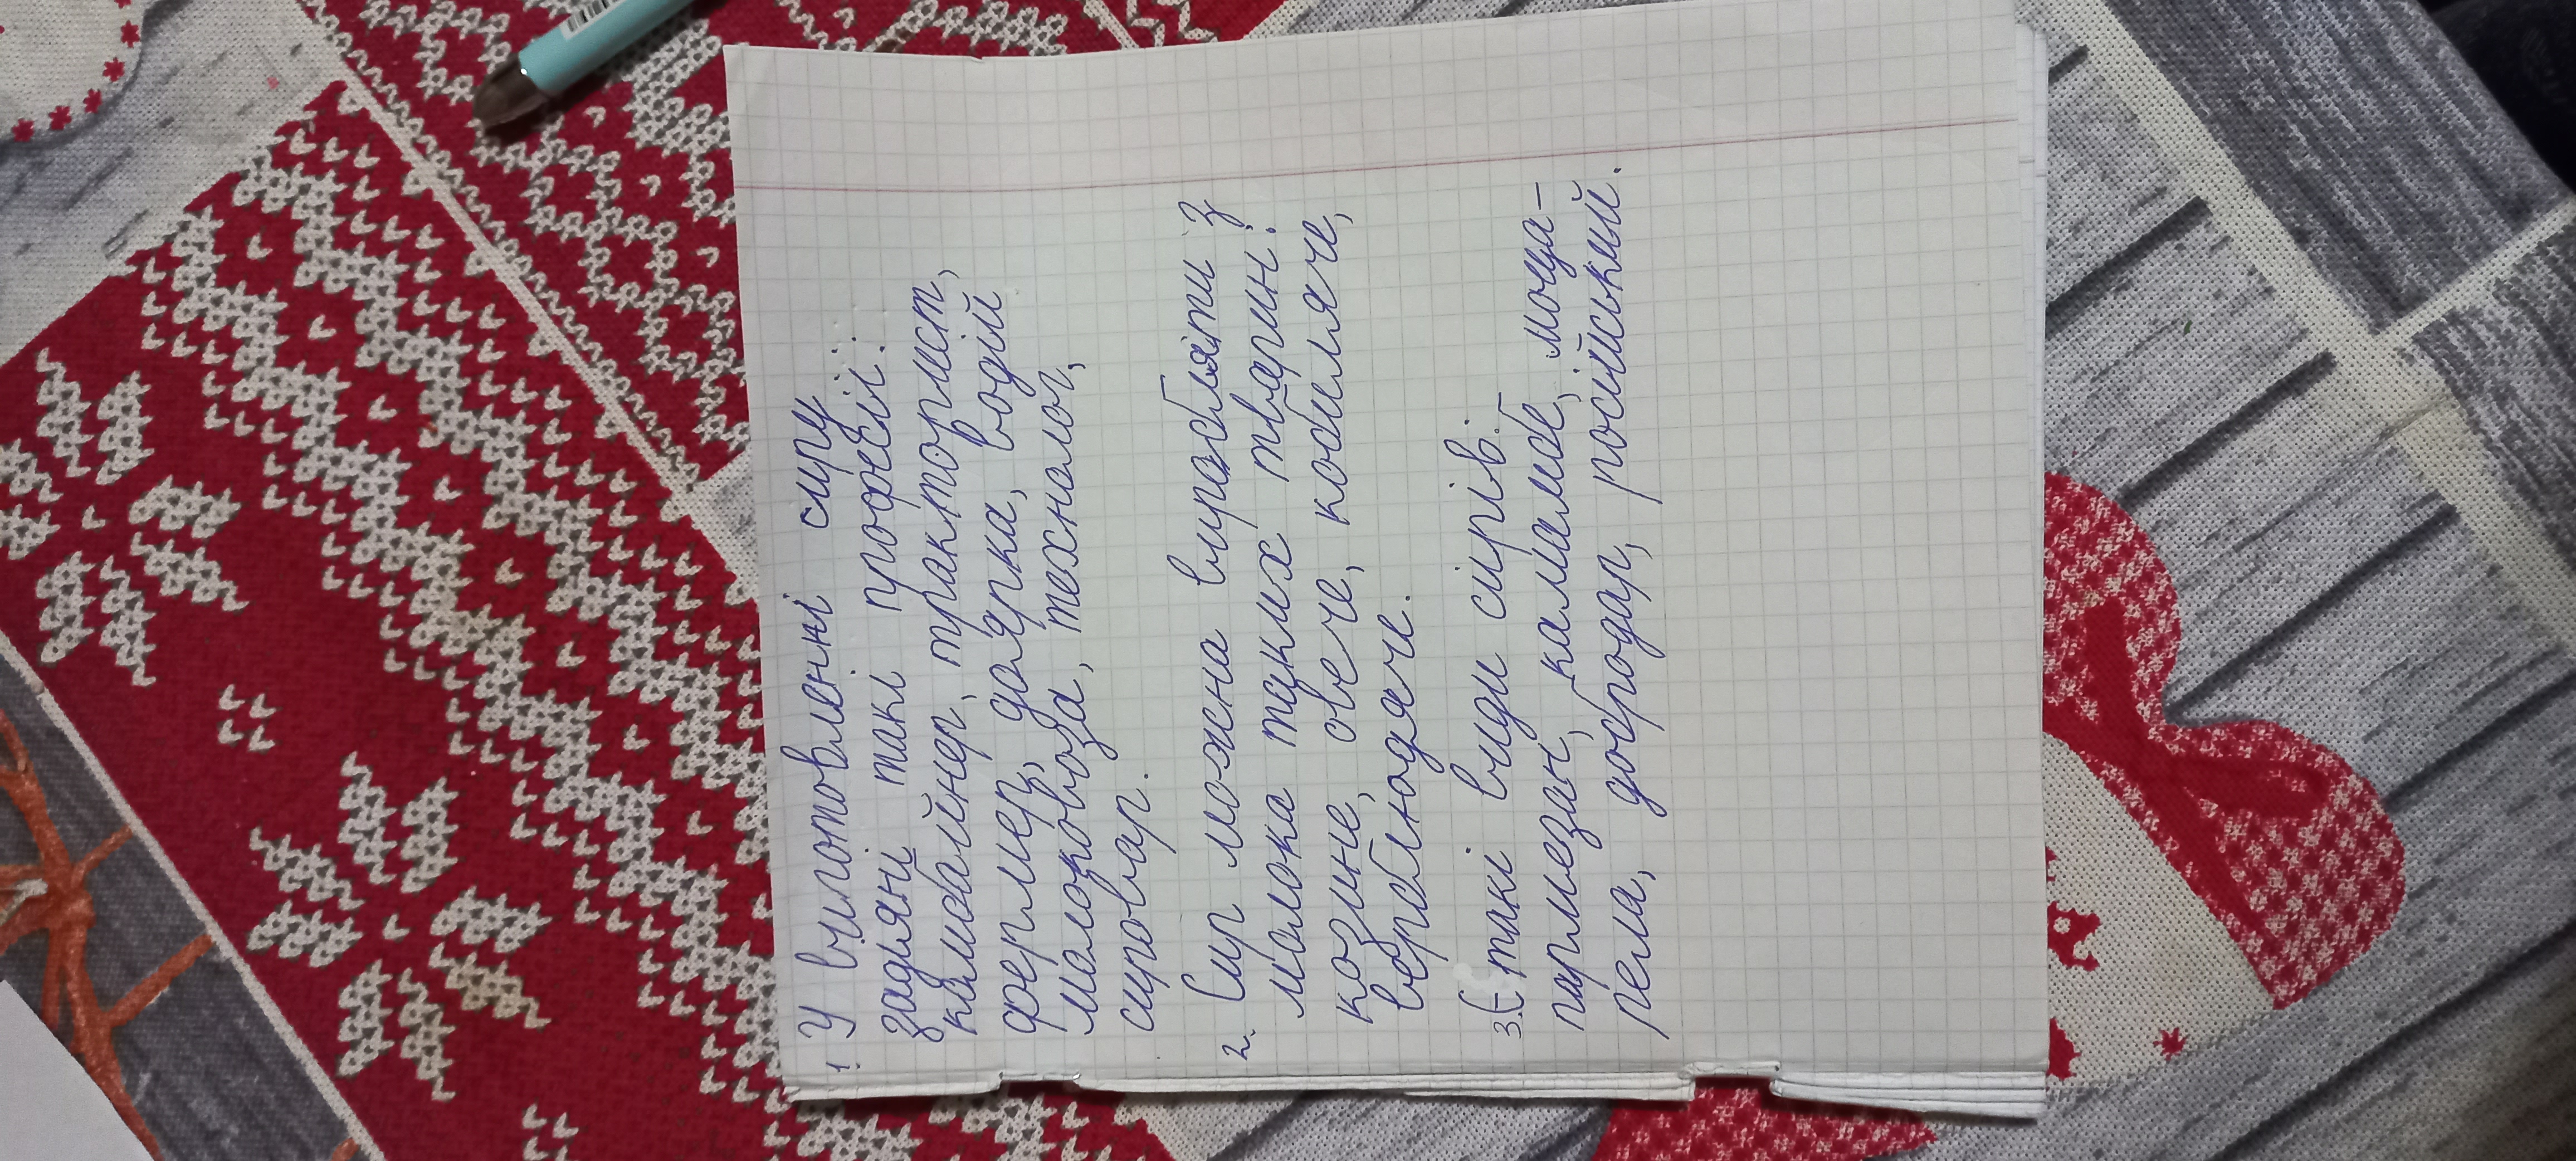 1. У виготовленні сиру
задіяні такі професії:
комбайнер, тракторист,
фермер, доярка, водій
молоковоза, технолог,
сировар.
2. Сир можна виробляти з
молока таких тварин:
козине, овече, кобиляче,
верблюдяче.
3. Є такі види сирів:
пармезан, камамбе, моца-
рела, доброdар, російський.